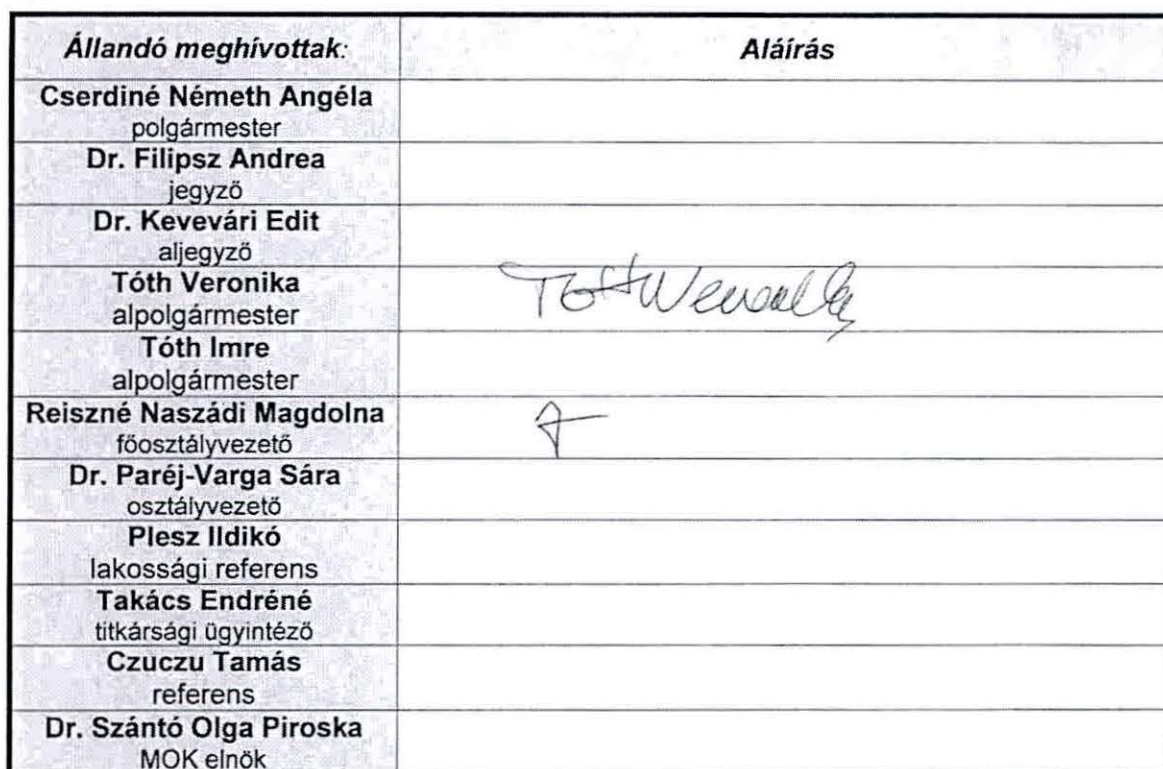 Állandó meghívottak: Aláírás
Cserdiné Németh Angéla
polgármester
Dr. Filipsz Andrea
jegyző
Dr. Kevevári Edit
aljegyző
Tóth Veronika
alpolgármester
Tóth Imre
alpolgármester
Reiszné Naszádi Magdolna
főosztályvezető
Dr. Paréj-Varga Sára
osztályvezető
Plesz Ildikó
lakossági referens
Takács Endréné
titkársági ügyintéző
Czuczu Tamás
referens
Dr. Szántó Olga Piroska
MOK elnök